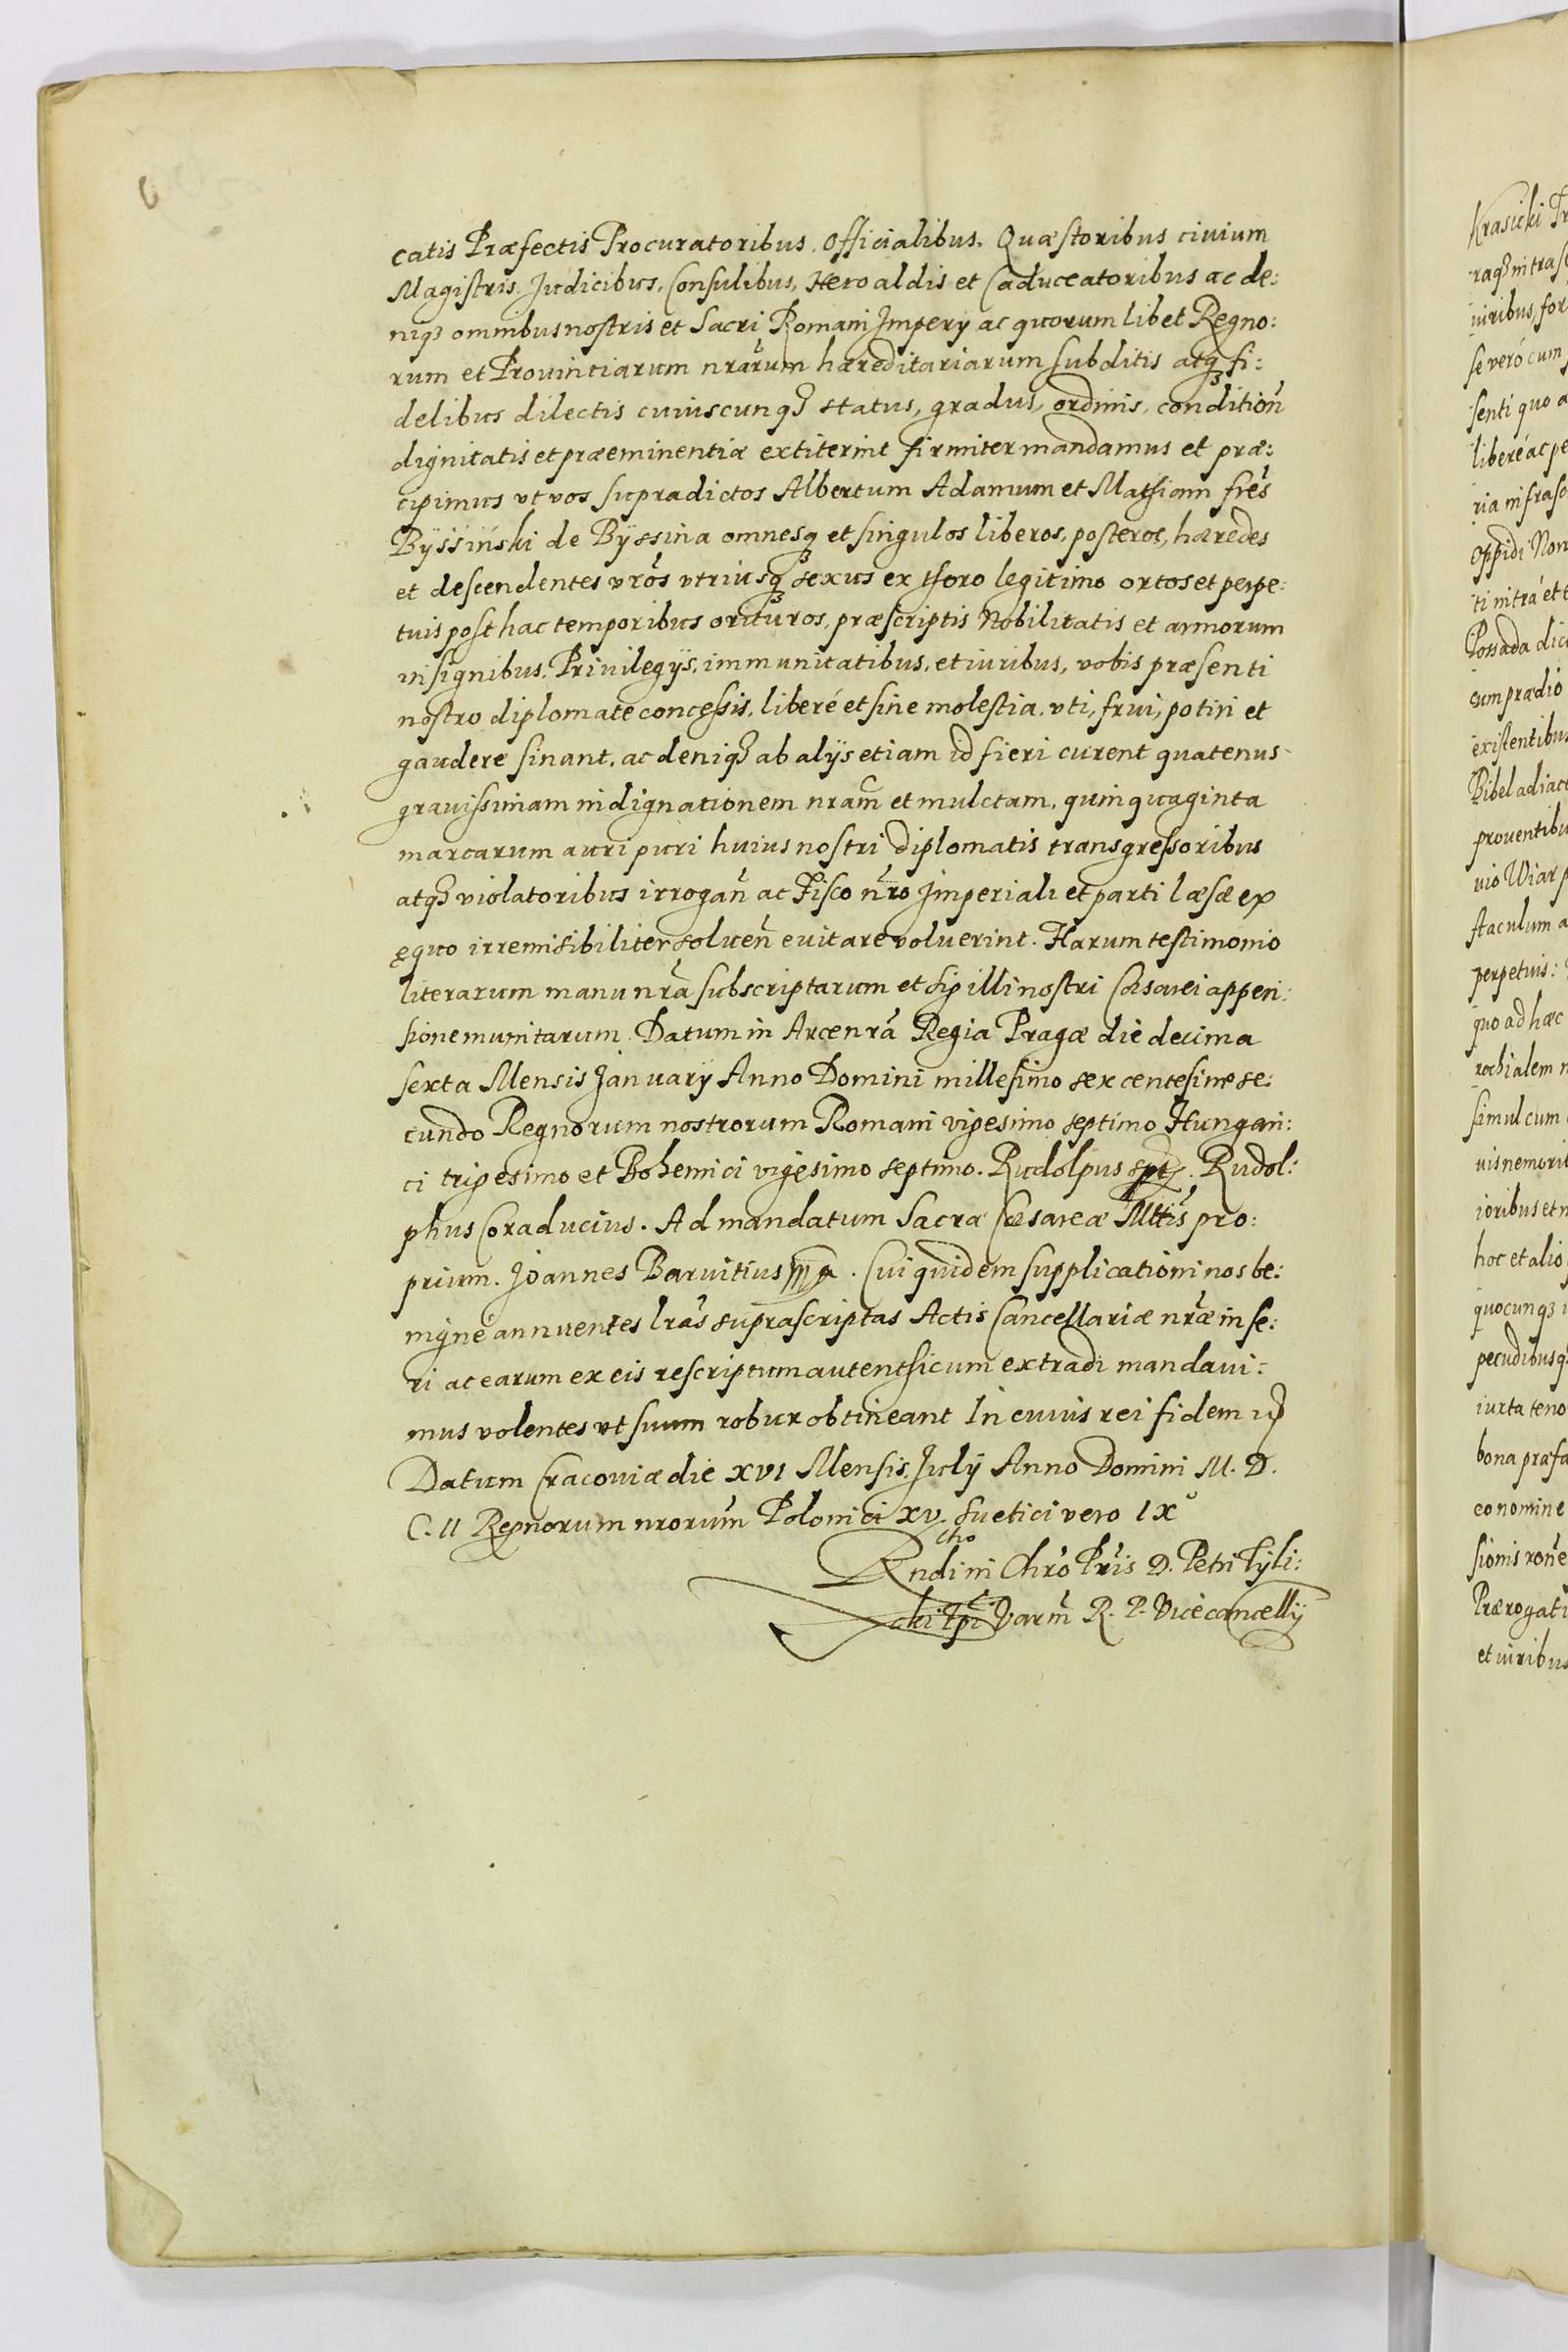 catis Præfectis Procuratoribus. Officialibus. Quæstoribus ciuium
Magistris. Judicibus, Consulibus, Heroaldis et Caduceatoribus ac de:
niqꝫ omnibus nostris et Sacri Romani Impery ac quorumlibet Regno:
rum et Prouinciarum nrarum hæreditariarum subditis atqꝫ fi:
delibus dilectis cuiuscunqꝫ status, gradus, ordinis, condition
dignitatis et præeminentiæ extiterint firmiter mandamus et præ:
cipimus vt vos supradictos Albertum Adamum et Mathiam fres
Byssinski de Byssina omnesqꝫ et singulos liberos, posteros, hæredes
et descendentes vros vtriusqꝫ sexus ex thoro legitimo ortos et perpe:
tuis posthac temporibus orituros, præscriptis Nobilitatis et armorum
insignibus, Priuilegijs, immunitatibus, et iuribus, vobis præsenti
nostro diplomate concessis, liberé et sine molestia, vti, frui, potiri et
gaudere sinant, ac deniqꝫ ab alijs etiam id fieri curent quatenus
grauissimam indignationem nram et mulctam, quinquaginta
marcarum auri puri huius nostri diplomatis transgressoribus
atqꝫ violatoribus irrogan ac Fisco nro Imperiali et parti læsæ ex
ęquo irremisibiliter soluen euitare voluerint. Harum testimonio
literarum manu nra subscriptarum et sigilli nostri Cæsarei appen:
sione munitarum. Datum in Arce nra Regia Pragæ die decima
sexta Mensis January Anno Domini millesimo sexcentesimo se:
cundo Regnorum nostrorum Romani vigesimo septimo Hungari:
ci trigesimo et Bohemici vigesimo septimo. Rudolpus sst. Rudol:
phus Coraducius. Ad mandatum Sacræ Cæsareæ Mttis pro:
prium. Joannes Baruitius mp. Cui quidem supplicationi nos be:
nigne annuentes lras suprascriptas Actis Cancellariæ nræ inse:
ri ac earum ex eis rescriptum autenthicum extradi mandaui:
mus volentes vt suum robur obtineant In cuius rei fidem
Datum Cracouiæ die XVI Mensis July Anno Domini M. D.
C. II Regnorum nrorum Polonici XV. Suetici vero IX°
Rndi in Chro Pris D. Petri Tyli:
cki Epi Varm R. P. Vicecancellij
Krasicki Pr
raqꝫ infras
iuribus, for
se veró cum
senti quo a
liberé ac pe
ria infrasc
Oppidi Nom
ti intrá et
Possada dic
cum prædio
existentibus
Bibel adiace
prouentibu
uio Wiar p
staculum a
perpetuis:
quo ad hæc
rochialem
simul cum
uis nemori
ioribus et
hoc et alio
quocunqꝫ
pecudibusq
iuxta teno
bona præfa
eo nomine
sionis rone
Prærogati
et iuribus